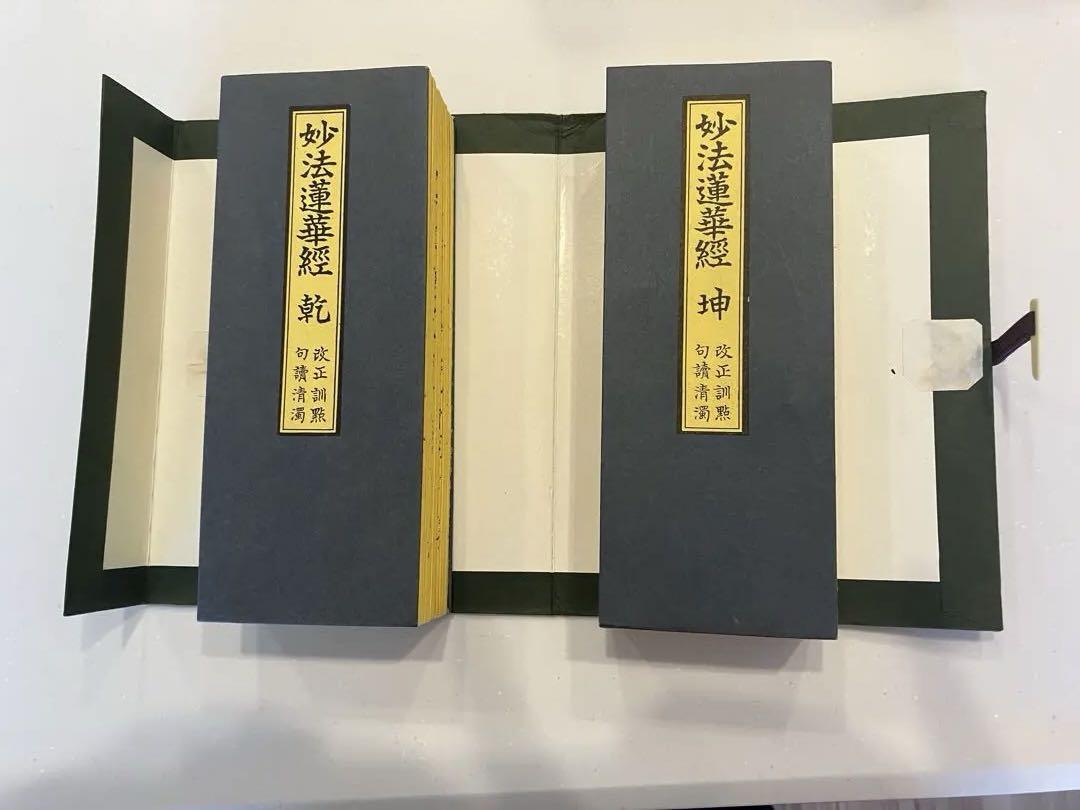 妙法蓮華經 乾
改正訓點
句讀清濁
妙法蓮華經 坤
改正訓點
句讀清濁